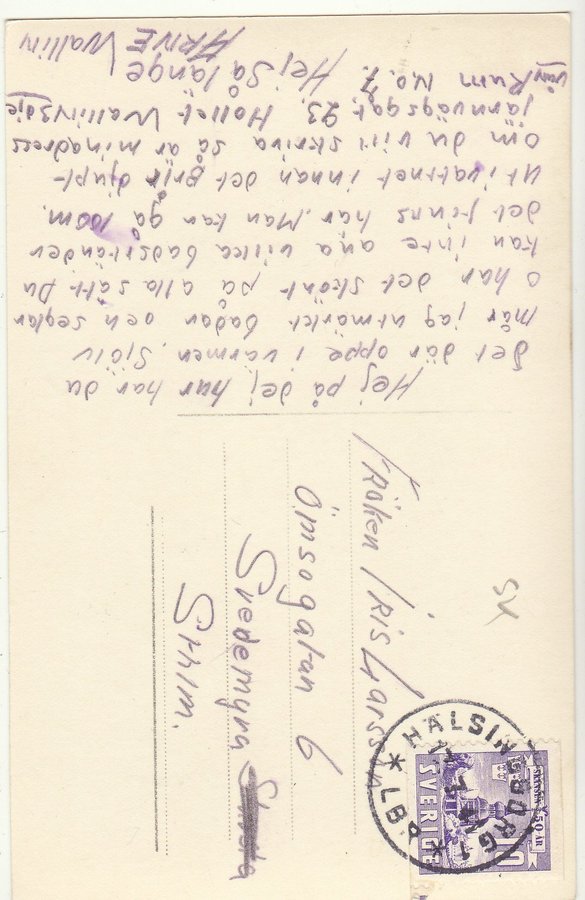 Hej på dej hur har du
det där oppe i värmen. Själv
mår jag utmärkt badar och seglar
o har det skönt på alla sätt. Du
kan inte ana vilka badstränder
det finns här. Man kan gå 100m.
ut i vattnet innan det blir djupt.
Om du vill skriva så är min adress
Järnvägsgat. 23. Hollet Wallinsdje
Rum N.o. 7.
Hej Så länge
ARNE Wallin
Fröken Iris Larsson
Ömsogatan 6
Svedemyra
Sthlm.
SK
HÄLSINGBORG 1
LBR
SKANSEN 50 ÅR
SVERIGE
10